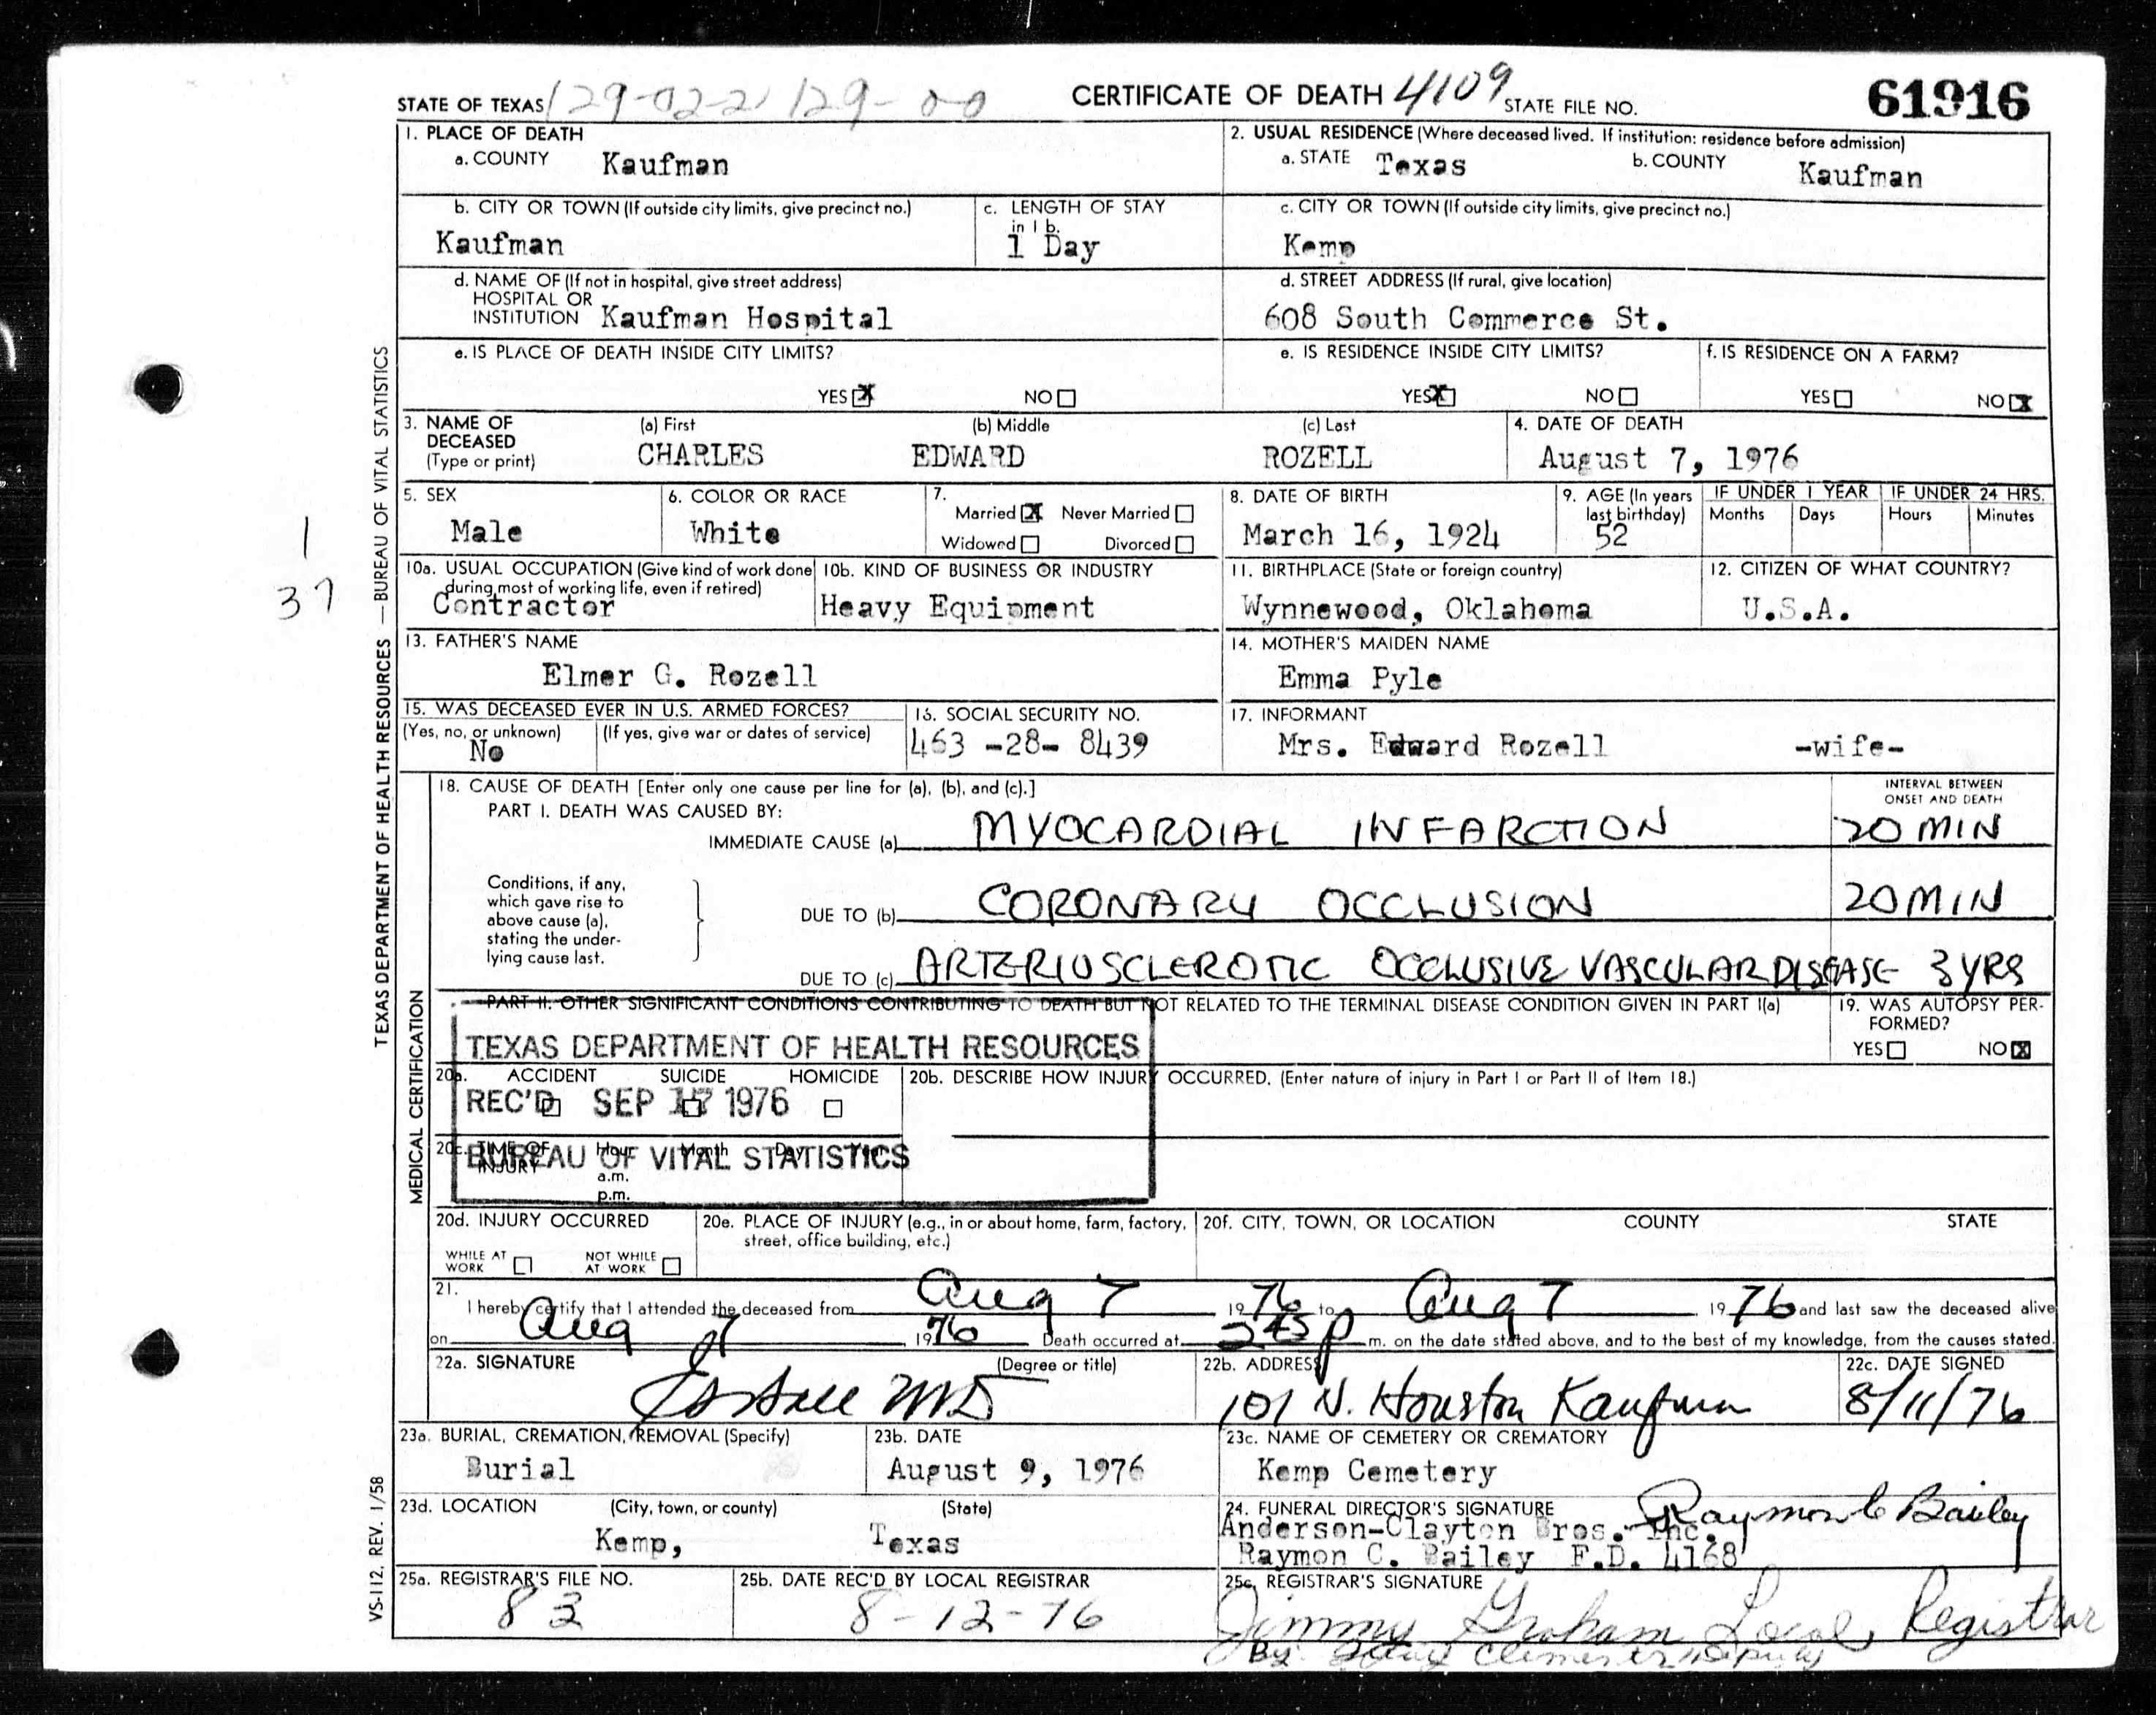 STATE OF TEXAS 129-02-2 129-00 CERTIFICATE OF DEATH 4109 STATE FILE NO. 61916
1. PLACE OF DEATH
a. COUNTY Kaufman
2. USUAL RESIDENCE (Where deceased lived. If institution: residence before admission)
a. STATE Texas b. COUNTY Kaufman
b. CITY OR TOWN (If outside city limits, give precinct no.)
Kaufman
c. LENGTH OF STAY
in 1 b.
1 Day
c. CITY OR TOWN (If outside city limits, give precinct no.)
Kemp
d. NAME OF (If not in hospital, give street address)
HOSPITAL OR
INSTITUTION Kaufman Hospital
d. STREET ADDRESS (If rural, give location)
608 South Commerce St.
e. IS PLACE OF DEATH INSIDE CITY LIMITS?
YES X NO
e. IS RESIDENCE INSIDE CITY LIMITS?
YES X NO
f. IS RESIDENCE ON A FARM?
YES NO X
3. NAME OF
DECEASED
(Type or print)
(a) First (b) Middle (c) Last
CHARLES EDWARD ROZELL
4. DATE OF DEATH
August 7, 1976
5. SEX
Male
6. COLOR OR RACE
White
7.
Married X Never Married
Widowed Divorced
8. DATE OF BIRTH
March 16, 1924
9. AGE (In years
last birthday)
52
IF UNDER 1 YEAR IF UNDER 24 HRS.
Months Days Hours Minutes
10a. USUAL OCCUPATION (Give kind of work done
during most of working life, even if retired)
Contractor
10b. KIND OF BUSINESS OR INDUSTRY
Heavy Equipment
11. BIRTHPLACE (State or foreign country)
Wynnewood, Oklahoma
12. CITIZEN OF WHAT COUNTRY?
U.S.A.
13. FATHER'S NAME
Elmer G. Rozell
14. MOTHER'S MAIDEN NAME
Emma Pyle
15. WAS DECEASED EVER IN U.S. ARMED FORCES?
(Yes, no, or unknown) (If yes, give war or dates of service)
No
16. SOCIAL SECURITY NO.
463 -28- 8439
17. INFORMANT
Mrs. Edward Rozell -wife-
18. CAUSE OF DEATH [Enter only one cause per line for (a), (b), and (c).]
INTERVAL BETWEEN
ONSET AND DEATH
PART I. DEATH WAS CAUSED BY:
IMMEDIATE CAUSE (a) MYOCARDIAL INFARCTION 20 MIN
Conditions, if any,
which gave rise to
above cause (a),
stating the under-
lying cause last.
DUE TO (b) CORONARY OCCLUSION 20 MIN
DUE TO (c) ARTERIOSCLEROTIC OCCLUSIVE VASCULAR DISEASE 3 YRS
PART II. OTHER SIGNIFICANT CONDITIONS CONTRIBUTING TO DEATH BUT NOT RELATED TO THE TERMINAL DISEASE CONDITION GIVEN IN PART I(a)
19. WAS AUTOPSY PER-
FORMED?
YES NO X
TEXAS DEPARTMENT OF HEALTH RESOURCES
20a. ACCIDENT SUICIDE HOMICIDE
REC'D SEP 1976
20b. DESCRIBE HOW INJURY OCCURRED. (Enter nature of injury in Part I or Part II of Item 18.)
20c. TIME OF Hour Month Day Year
INJURY
BUREAU OF VITAL STATISTICS
a.m.
p.m.
20d. INJURY OCCURRED
WHILE AT
WORK
NOT WHILE
AT WORK
20e. PLACE OF INJURY (e.g., in or about home, farm, factory,
street, office building, etc.)
20f. CITY, TOWN, OR LOCATION COUNTY STATE
21.
I hereby certify that I attended the deceased from Aug 7 1976 to Aug 7 1976 and last saw the deceased alive
on Aug 7 1976 Death occurred at 245 p m. on the date stated above, and to the best of my knowledge, from the causes stated.
22a. SIGNATURE (Degree or title)
MD
22b. ADDRESS
101 N. Houston Kaufman
22c. DATE SIGNED
8/11/76
23a. BURIAL, CREMATION, REMOVAL (Specify)
Burial
23b. DATE
August 9, 1976
23c. NAME OF CEMETERY OR CREMATORY
Kemp Cemetery
23d. LOCATION (City, town, or county) (State)
Kemp, Texas
24. FUNERAL DIRECTOR'S SIGNATURE Raymon C Bailey
Anderson-Clayton Bros. Inc.
Raymon C. Bailey F.D. 4168
25a. REGISTRAR'S FILE NO.
83
25b. DATE REC'D BY LOCAL REGISTRAR
8-12-76
25c. REGISTRAR'S SIGNATURE
Jimmy Graham Local Registrar
By Deputy
TEXAS DEPARTMENT OF HEALTH RESOURCES — BUREAU OF VITAL STATISTICS
MEDICAL CERTIFICATION
VS-112, REV. 1/58
1
37